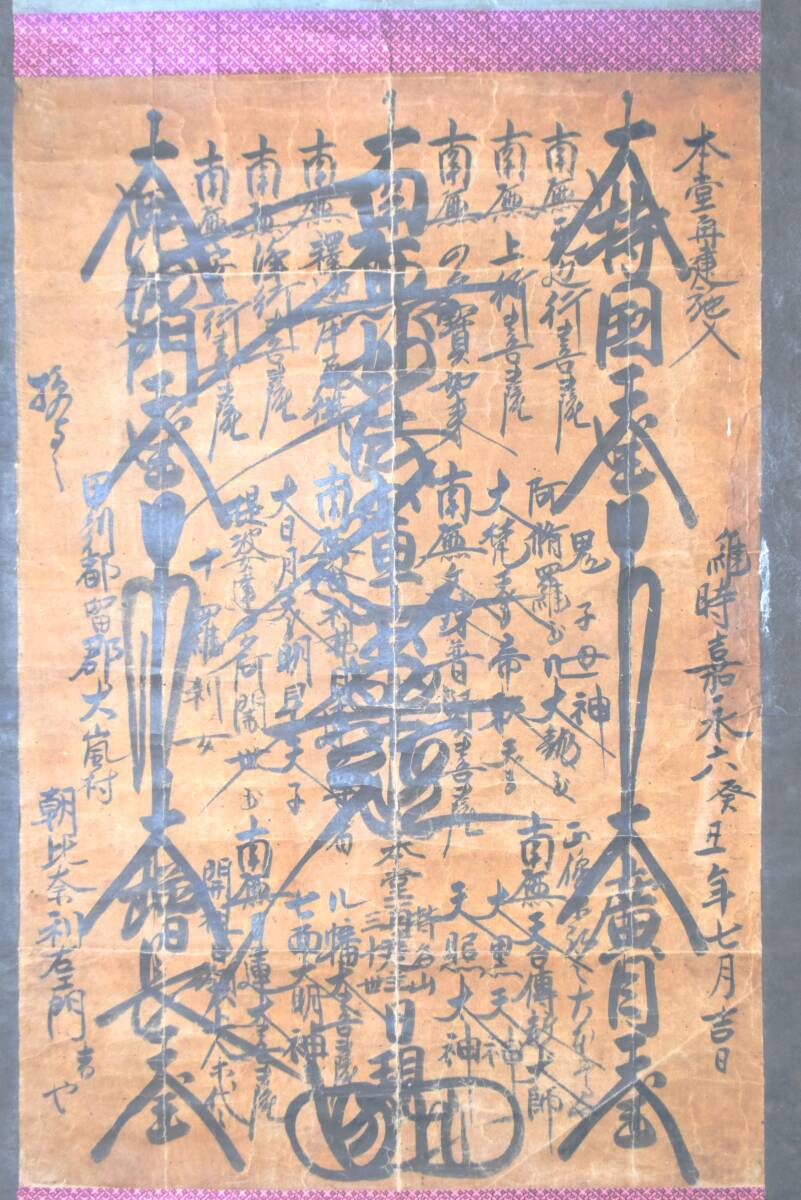 本堂再建施入
維時嘉永六癸丑年七月吉日
大持國天王
大廣目天王
南無無邊行菩薩
南無上行菩薩
南無多寶如来
南無妙法蓮華経
南無釋迦牟尼佛
南無浄行菩薩
南無安立行菩薩
大毘沙門天王
鬼子母神
阿脩羅王
大龍王
大梵天王
帝釈天王
南無文殊普賢菩薩
大日月大明星天子
提婆達多
阿闍世王
十羅刹女
南無天台傳教大師
大黒天神
天照太神
本堂再建
三十世
日
八幡大菩薩
七面大明神
南無日蓮大菩薩
大増長天王
授与之
都留郡大嵐村
朝比奈利左エ門